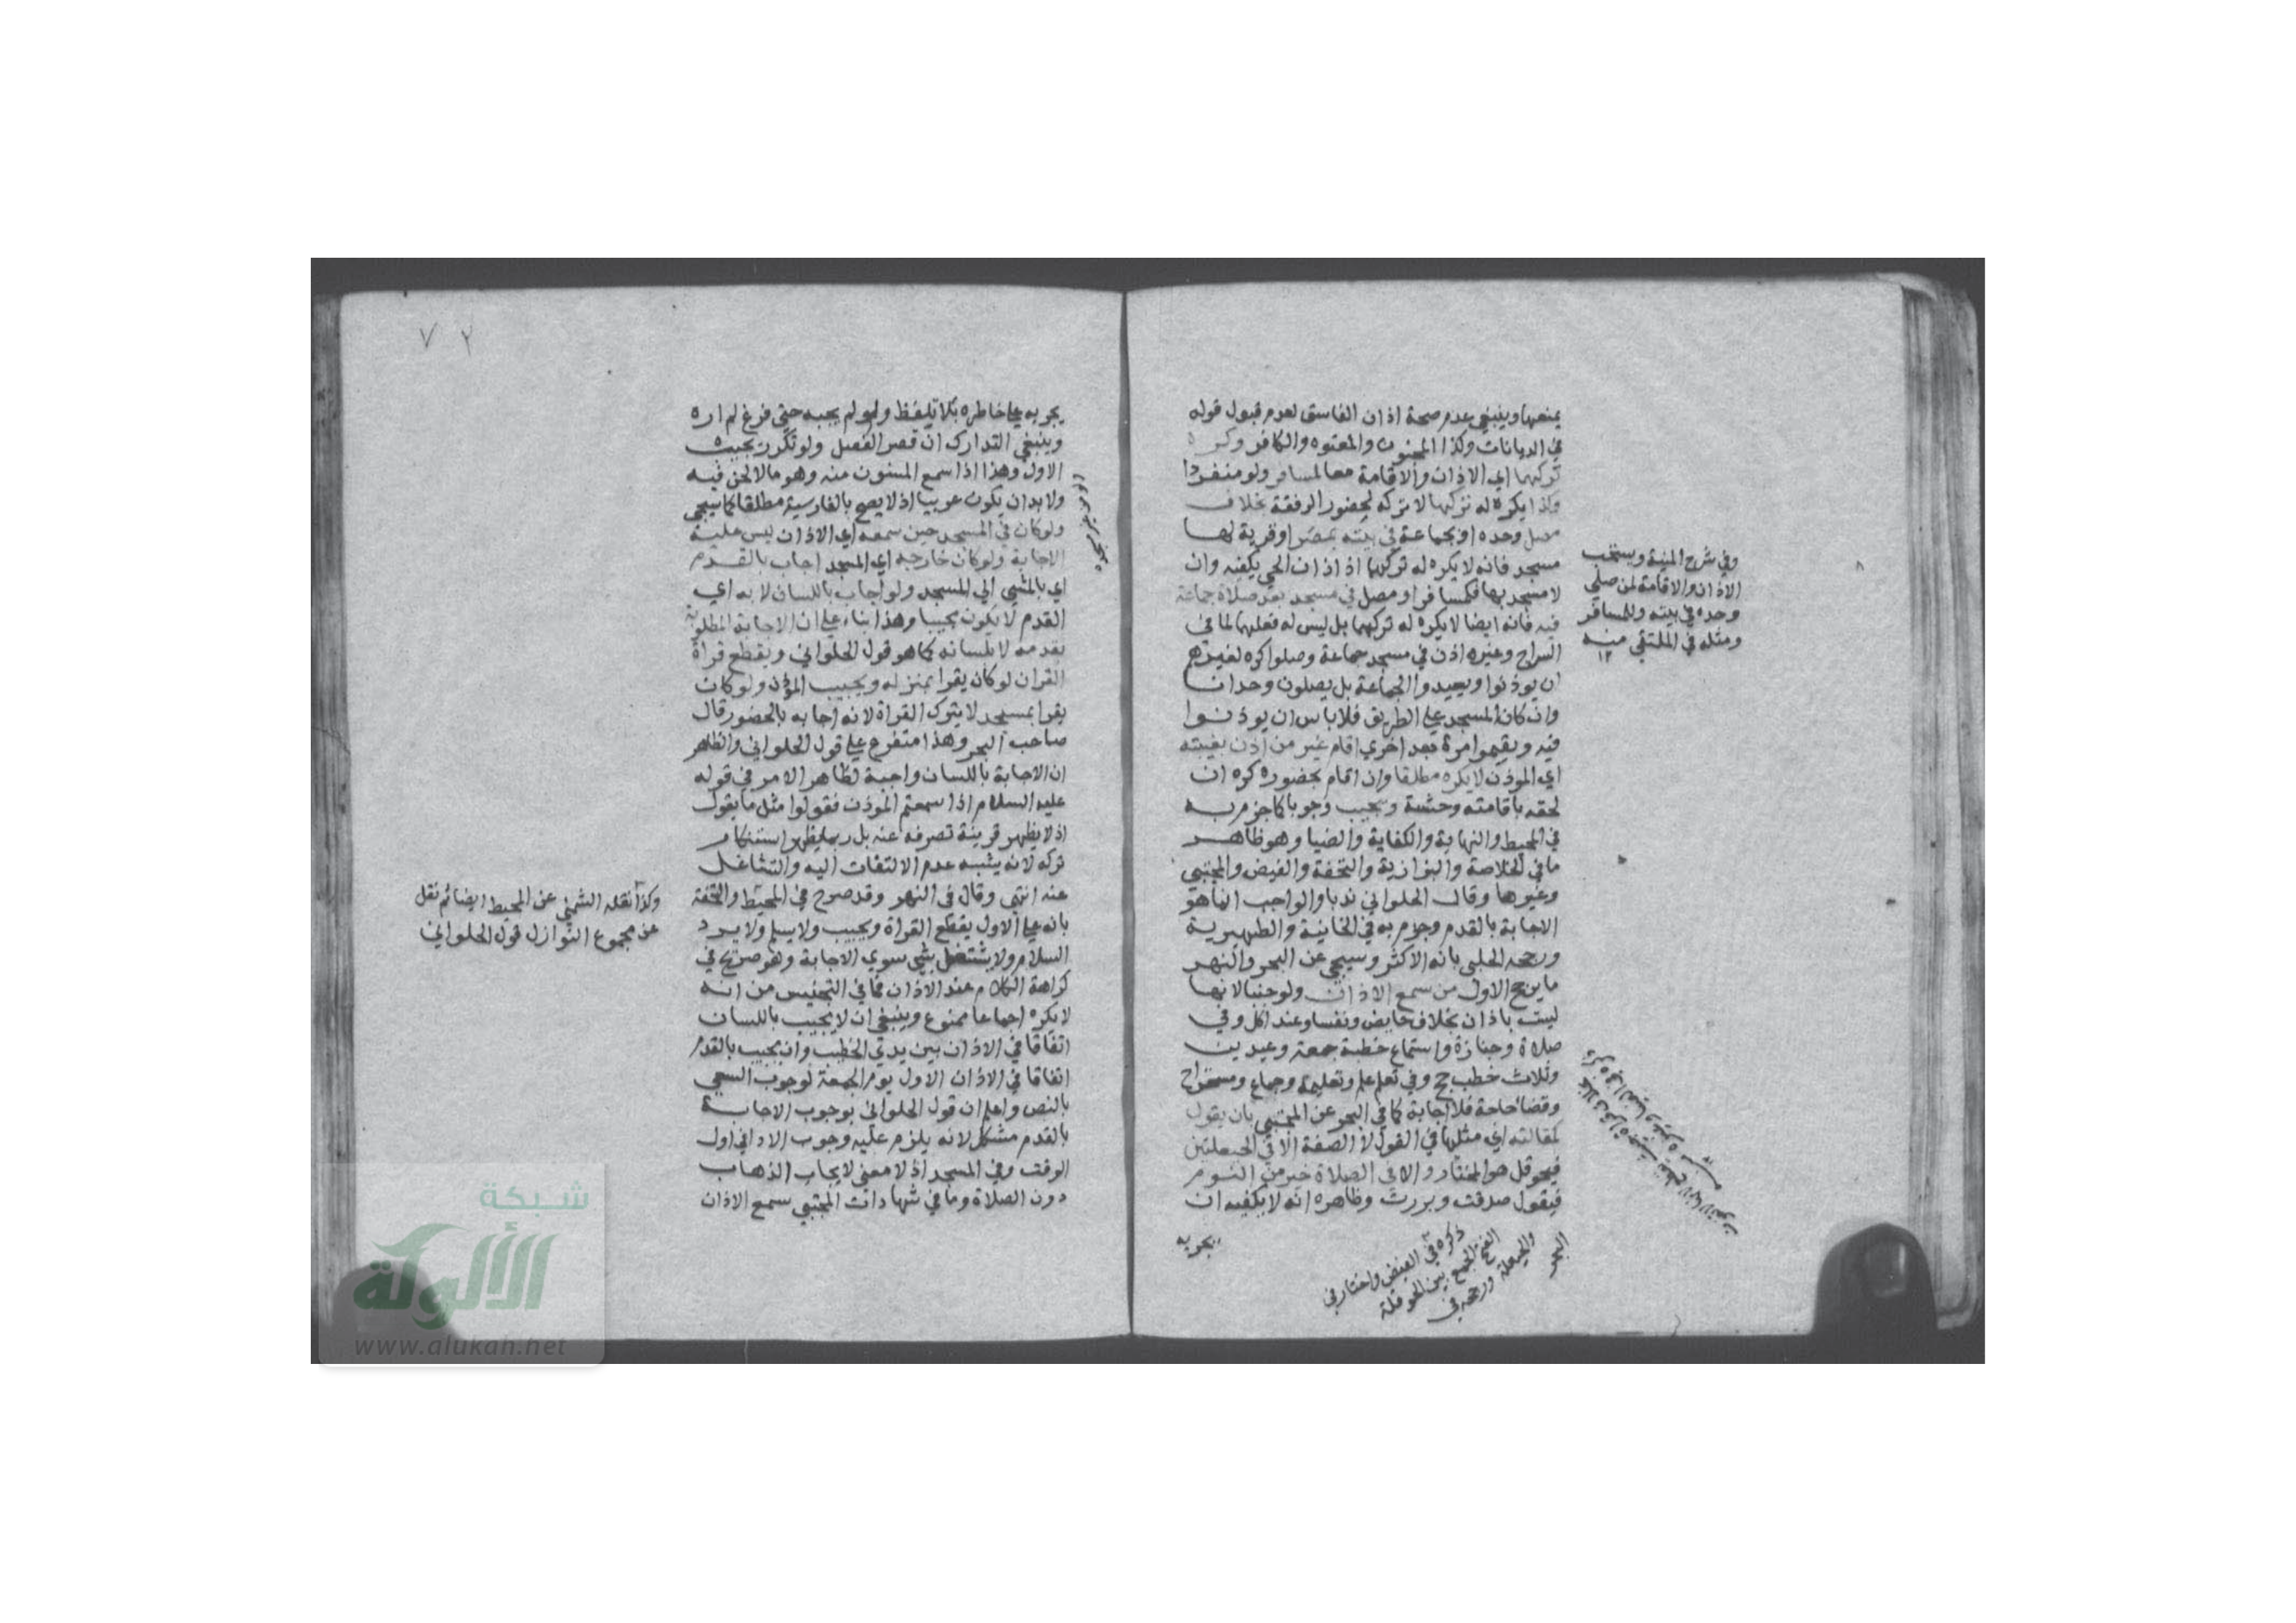 يمنعها وينبغي عدم صحة اذان الفاسق لعدم قبول قوله
في الديانات وكذا المجنون والمعتوه والكافر وكره
تركهما اي الاذان والاقامة معا لمسافر ولو منفردا
وكذا يكره له تركها لا تركه لحضور الرفقة بخلاف
مصل وحده او بجماعة في بيته بمصر او قرية لها
مسجد فانه لا يكره له تركهما اذ اذان الحي يكفيه وان
لا مسجد بها فكمسافر او مصل في مسجد بعد صلاة جماعة
فيه فانه ايضا لا يكره له تركهما بل ليس له فعلهما لما في
السراج وغيره اذن في مسجد جماعة وصلوا كره لغيرهم
ان يوذنوا ويعيدوا الجماعة بل يصلون وحدانا
وان كان المسجد علي الطريق فلا باس ان يوذنوا
فيه ويقيموا مرة بعد اخري اقام غير من اذن بغيبته
اي الموذن لا يكره مطلقا وان اقام بحضوره كره ان
لحقه باقامته وحشة ويجيب وجوبا كما جزم به
في المحيط والنهاية والكفاية والضيا وهو ظاهر
ما في الخلاصة والبزازية والتحفة والفيض والمجتبي
وغيرها وقال الحلواني ندبا والواجب انما هو
الاجابة بالقدم وجزم به في الخانية والظهيرية
ورجحه الحلبي بانه الاكثر وسيجي عن البحر والنهر
ما يرجح الاول من سمع الاذان ولو جنبا لانها
ليست باذان بخلاف حايض ونفسا وعند اكل وفي
صلاة وجنازة واستماع خطبة جمعة وعيدين
وثلاث خطب حج وفي تعلم علم وتعليمه وجماع ومستراح
وقضا حاجة فلا اجابة كما في البحر عن المجتبي بان يقول
كمقالته اي مثلها في القول لا الصفة الا في الحيعلتين
فيحوقل هو المختار والا في الصلاة خير من النوم
فيقول صدقت وبررت وظاهره انه لا يكفيه ان
يجريه
وفي شرح المنية ويستحب
الاذان والاقامة لمن صلي
وحده في بيته وللمسافر
ومثله في الملتقي منه
١٢
ذكره في الفيض واختار في
الفتح الجمع بين الحوقلة
والحيعلة ورجحه في
البحر
٧٢
يجريه علي خاطره بلا تلفظ ولو لم يجبه حتي فرغ لم اره
وينبغي التدارك ان قصر الفصل ولو تكرر يجيب
الاول وهذا اذا سمع المسنون منه وهو ما لا لحن فيه
ولا بد ان يكون عربيا اذ لا يصح بالفارسية مطلقا كما سيجي
ولو كان في المسجد حين سمعه اي الاذان ليس عليه
الاجابة ولو كان خارجه اي المسجد اجاب بالقدم
اي بالمشي الي المسجد ولو اجاب باللسان لا به اي
القدم لا يكون مجيبا وهذا بناء علي ان الاجابة المطلوبة
بقدمه لا بلسانه كما هو قول الحلواني ويقطع قراة
القران لو كان يقرا بمنزله ويجيب الموذن ولو كان
يقرا بمسجد لا يترك القراة لانه اجابه بالحضور قال
صاحب البحر وهذا متفرع علي قول الحلواني والظاهر
ان الاجابة باللسان واجبة لظاهر الامر في قوله
عليه السلام اذا سمعتم الموذن فقولوا مثل ما يقول
اذ لا يظهر قرينة تصرفه عنه بل ربما يظهر استنكار
تركه لانه يشبه عدم الالتفات اليه والتشاغل
عنه انتهي وقال في النهر وقد صرح في المحيط والتحفة
بانه علي الاول يقطع القراة ويجيب ولا يسلم ولا يرد
السلام ولا يشتغل بشي سوي الاجابة وهو صريح في
كراهة الكلام عند الاذان فما في التجنيس من انه
لا يكره اجماعا ممنوع وينبغي ان لا يجيب باللسان
اتفاقا في الاذان بين يدي الخطيب وان يجيب بالقدم
اتفاقا في الاذان الاول يوم الجمعة لوجوب السعي
بالنص واعلم ان قول الحلواني بوجوب الاجابة
بالقدم مشكل لانه يلزم عليه وجوب الادا في اول
الوقت وفي المسجد اذ لا معني لايجاب الذهاب
دون الصلاة وما في شهادات المجتبي سمع الاذان
وكذا نقله الشمني عن المحيط ايضا ثم نقل
عن مجموع النوازل قول الحلواني
شبكة
الألوكة
www.alukah.net